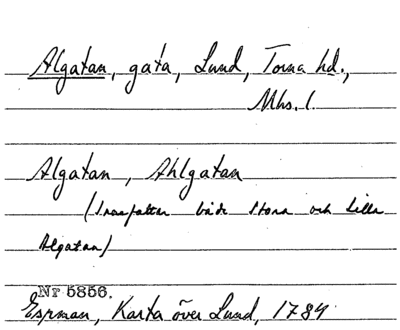 Algatan, gata, Lund, Torna hd.,
Mhs. l.
Algatan, Ahlgatan
(Innefattar både Stora och Lilla
Algatan)
Nr 5856.
Espman, Karta över Lund, 1784